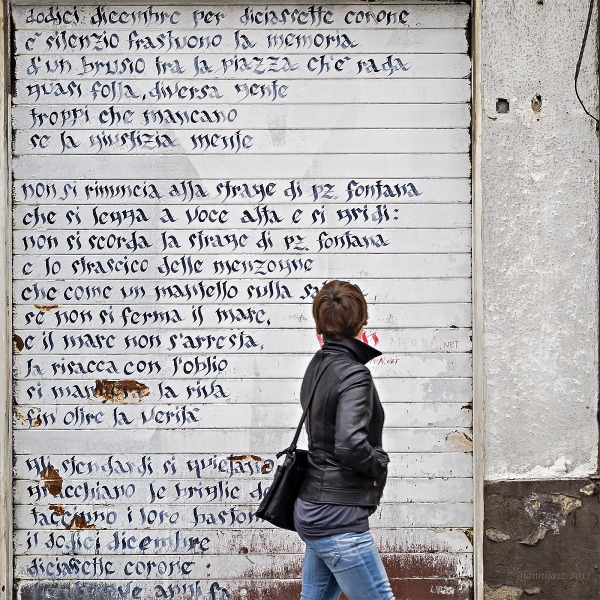 dodici dicembre per diciassette corone
è silenzio frastuono la memoria
d'un brusio tra la piazza ch'è rada
quasi folla, diversa gente
troppi che mancano
se la giustizia mente
non si rinuncia alla strage di pz. fontana
che si legga a voce alta e si gridi:
non si scorda la strage di pz. fontana
e lo strascico delle menzogne
che come un mantello sulla
se non si ferma il mare,
e il mare non s'arresta,
la risacca con l'oblio
si la riva
fin oltre la verità
gli stendardi si quietano
le briglie
tacciono i loro
il dodici dicembre
diciassette corone
anni fa
.NET
.NET